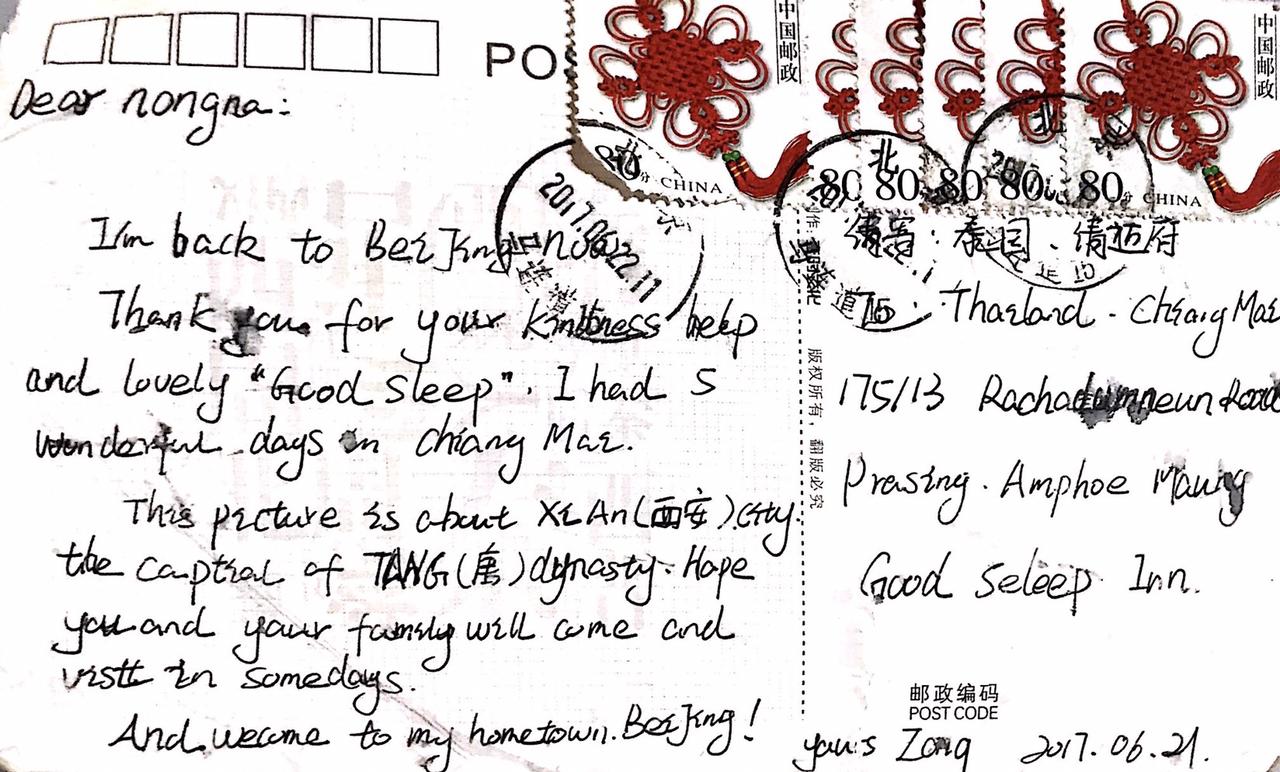 PO
中国邮政
中国邮政
80分 CHINA
80 80 80 80 80分 CHINA
北
2017.06.22.11
Dear nongna:
I'm back to BeiJing now
Thank you for your kindness help
and lovely "Good sleep". I had 5
wonderful days in Chiang Mai.
This picture is about XiAn(西安)City.
the captial of TANG(唐)dynasty. Hope
you and your family will come and
visit in somedays.
And wecome to my hometown. BeiJing!
版权所有，翻版必究
泰国、清迈府
Thailand. Chiang Mai
175/13 Rachadumneun Road
Prasing. Amphoe Maung
Good seleep Inn.
邮政编码
POST CODE
yours Zong 2017.06.21.